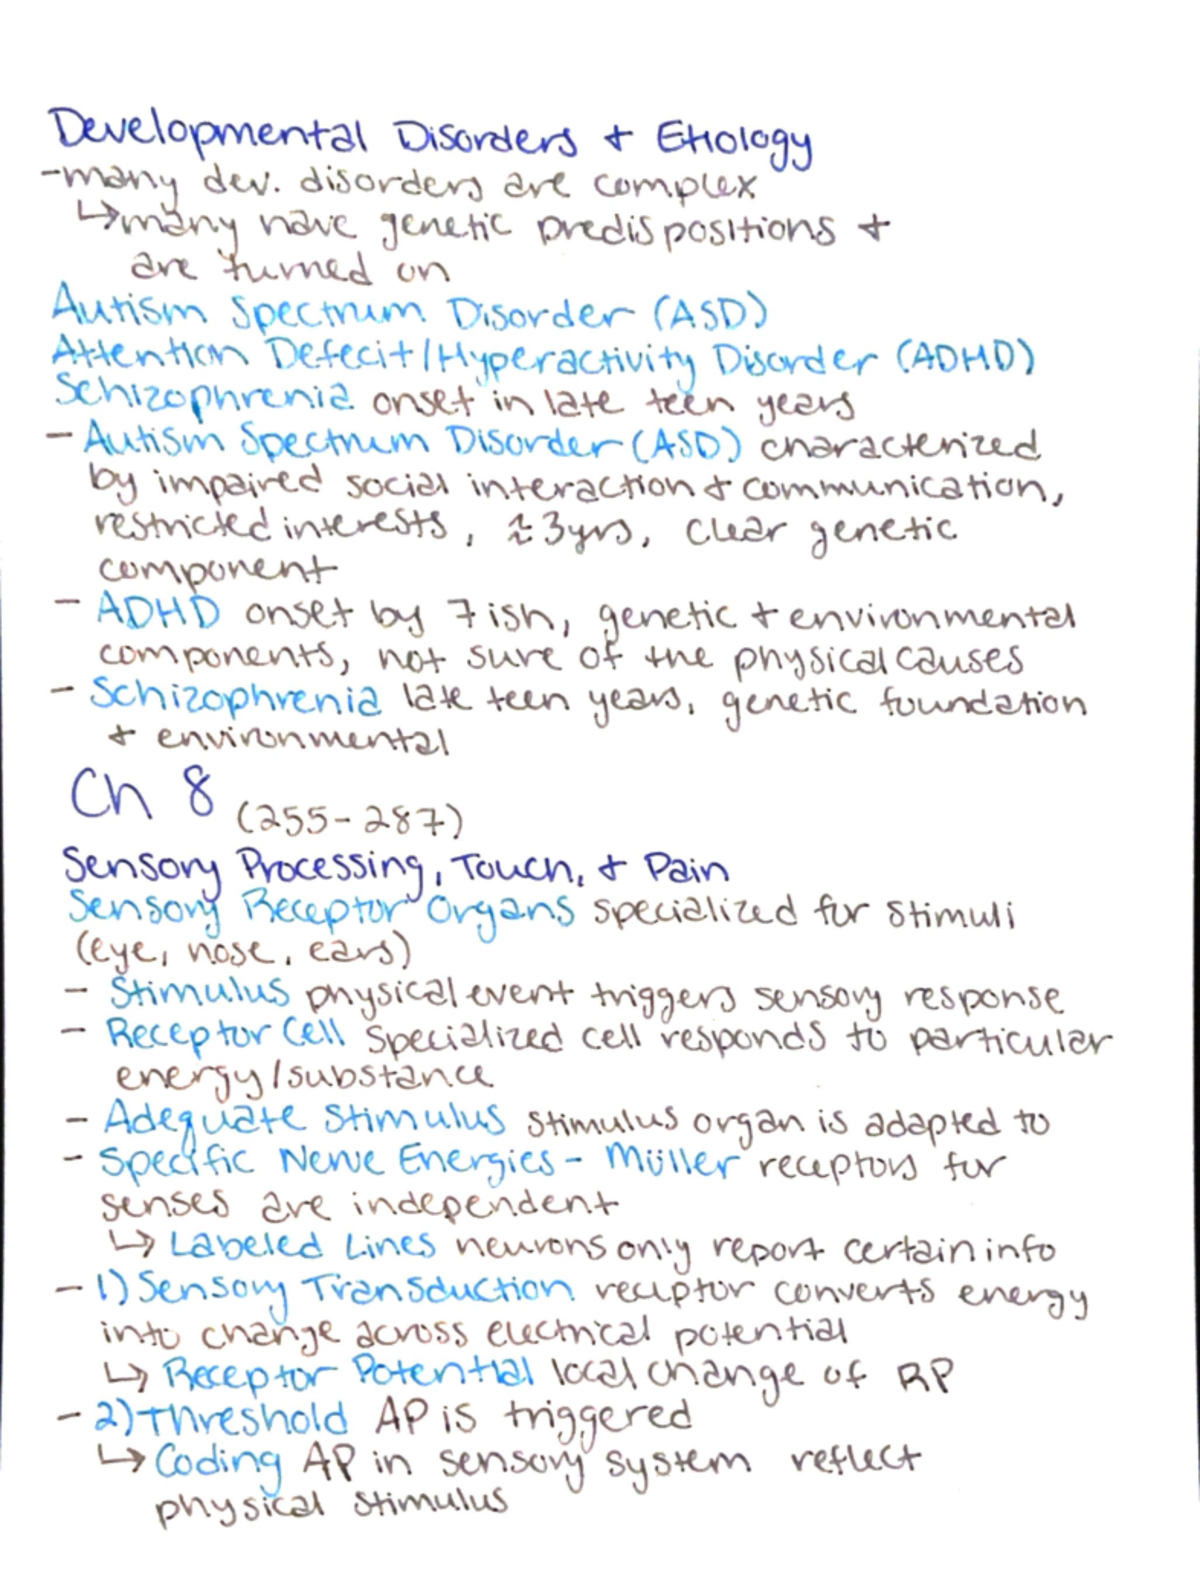 Developmental Disorders + Etiology
-many dev. disorders are complex
↳many have genetic predispositions +
are turned on
Autism Spectrum Disorder (ASD)
Attention Defecit/Hyperactivity Disorder (ADHD)
Schizophrenia onset in late teen years
- Autism Spectrum Disorder (ASD) characterized
by impaired social interaction + communication,
restricted interests, ≈3yrs, clear genetic
component
- ADHD onset by 7ish, genetic + environmental
components, not sure of the physical causes
- Schizophrenia late teen years, genetic foundation
+ environmental
Ch 8 (255-287)
Sensory Processing, Touch, + Pain
Sensory Receptor Organs specialized for stimuli
(eye, nose, ears)
- Stimulus physical event triggers sensory response
- Receptor Cell specialized cell responds to particular
energy/substance
- Adequate Stimulus stimulus organ is adapted to
- Specific Nerve Energies - Müller receptors for
senses are independent
↳ Labeled Lines neurons only report certain info
- 1) Sensory Transduction receptor converts energy
into change across electrical potential
↳ Receptor Potential local change of RP
- 2) Threshold AP is triggered
↳ Coding AP in sensory system reflect
physical stimulus